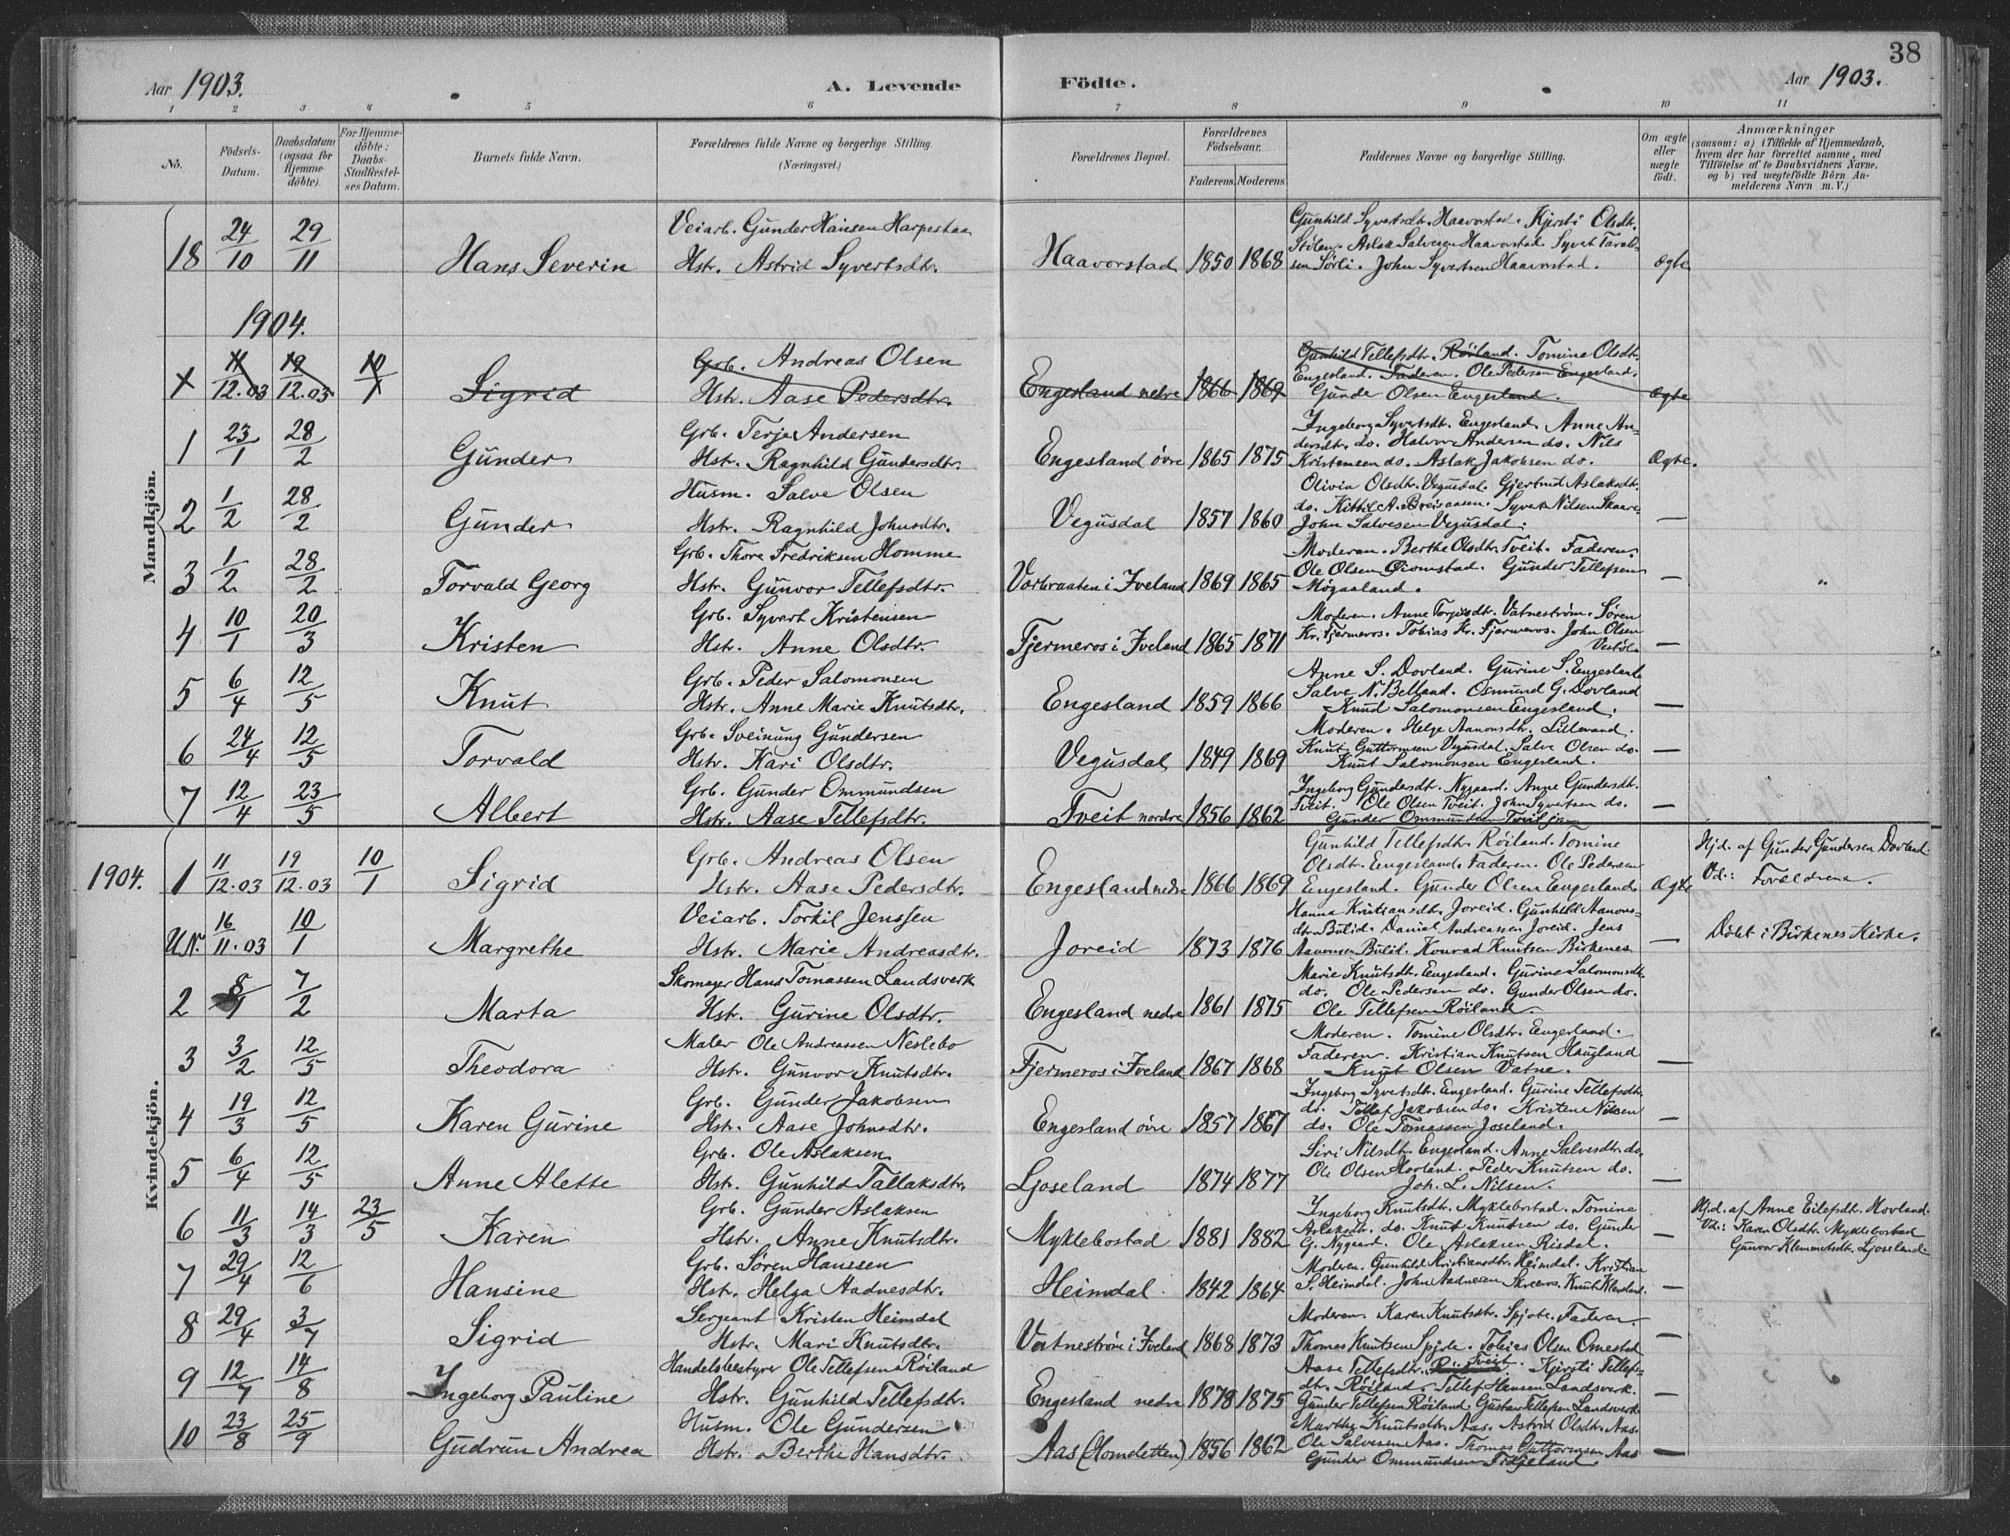 38
Aar 1903.
A. Levende
Födte.
Aar 1903.
1 2 3 4 5 6 7 8 9 10 11
No.
Födsels-
Datum.
Daabsdatum
(ogsaa for
Hjemme-
döbte).
For Hjemme-
döbte:
Daabs-
Stadfæstel-
ses Datum.
Barnets fulde Navn.
Forældrenes fulde Navne og borgerlige Stilling.
(Næringsvei.)
Forældrenes Bopæl.
Forældrenes
Födselsaar.
Faderens. Moderens.
Faddernes Navne og borgerlige Stilling.
Om ægte
eller
uægte
födt.
Anmærkninger
(saasom: a) i Tilfælde af Hjemmedaab,
hvem der har forrettet samme, med
Tilföielse af to Daabsvidners Navne.
og b) ved uægtefödte Börn An-
melderens Navn m. V.)
Mandkjön.
18 24/10 29/11 Hans Severin
Veiarb. Gunder Hansen Harpestaa
Hstr. Astrid Syvertsdtr.
Haavorstad 1850 1868
Gunhild Syvertsdtr. Haavorstad. Kjersti Olsdtr.
Stölen. Aslak Salvesen Haavorstad Syvert Tarald-
sen Sørli. John Syvertsen Haavorstad.
Ægte
1904.
x 11/12.03 19/12.03 10/1 Sigrid
Grb. Andreas Olsen
Hstr. Aase Pedersdtr.
Engesland nedre 1866 1869
Gunhild Tellefsdtr. Røiland. Tomine Olsdtr.
Engesland. Faderen. Ole Pedersen Engesland.
Gunder Olsen Engesland.
Ægte
1 23/1 28/2 Gunder
Grb. Terje Andersen
Hstr. Ragnhild Gundersdtr.
Engesland övre 1865 1875
Ingeborg Syvertsdtr. Engesland Anne An-
dersdtr. do. Halvor Andersen do. Nils
Kristensen do. Aslak Jakobsen do.
Ægte.
2 1/2 28/2 Gunder
Husm. Salve Olsen
Hstr. Ragnhild Johnsdtr.
Vegusdal 1857 1860
Olivia Olsdtr. Vegusdal. Gjertrud Aslaksdtr.
do. Kittil A. Breisaasen. Syvert Nilsen Skaare
John Salvesen Vegusdal.
—
3 1/2 28/2 Torvald Georg
Grb. Thore Fredriksen Homme
Hstr. Gunvor Tellefsdtr.
Vatbraaten i Iveland 1869 1865
Moderen. Berthe Olsdtr. Tveit. Faderen.
Ole Olsen. Gunder Tellefsen
Møgaaland.
— "
4 10/1 20/3 Kristen
Grb. Syvert Kristensen
Hstr. Anne Olsdtr.
Fjermeros i Iveland 1865 1871
Moderen. Anne Torjusdtr. Vatneström. Sören
Kr. Fjermeros. Tobias Kr. Fjermeros. John Olsen
Vestöl.
—
5 6/4 12/5 Knut
Grb. Peder Salomonsen
Hstr. Anne Marie Knutsdtr.
Engesland 1859 1866
Anne S. Dovland. Gurine S. Engesland
Salve N. Belland. Osmund G. Dovland
Knud Salomonsen Engesland.
—
6 24/4 12/5 Torvald
Grb. Sveinung Gundersen
Hstr. Kari Olsdtr.
Vegusdal 1849 1869
Moderen. Helge Aanonsdtr. Lillevand.
Knut Guttormsen Vegusdal. Salve Olsen do.
Knut Salomonsen Engesland.
—
7 12/4 23/5 Albert
Grb. Gunder Ommundsen
Hstr. Aase Tellefsdtr.
Tveit nordre 1856 1862
Ingeborg Gundersdtr. Nygaard. Anne Gundersdtr.
Tveit. Ole Olsen Tveit. John Syvertsen do.
Gunder Ommundsen Tveit jun
—
1904.
Kvindekjön.
1 11/12.03 19/12.03 10/1 Sigrid
Grb. Andreas Olsen
Hstr. Aase Pedersdtr.
Engesland nedre 1866 1869
Gunhild Tellefsdtr. Røiland. Tomine
Olsdtr. Engesland. Faderen. Ole Pedersen
Engesland. Gunder Olsen Engesland
Ægte
Hjd. af Gunder Gundersen Dovland
Vd.: Forældrene.
U.N. 16/11.03 10/1 Margrethe
Veiarb. Torkil Jenssen
Hstr. Marie Andreasdtr.
Joreid 1873 1876
Hanna Kristiansdtr. Joreid. Gunhild Aanons-
dtr. Bulid. Daniel Andreassen Joreid. Jens
Aanonsen Bulid. Konrad Knutsen Birkenes
—
Döbt i Birkenes Kirke.
2 8/1 7/2 Marta
Skomager Hans Tomassen Landsverk
Hstr. Gurine Olsdtr.
Engesland nedre 1861 1875
Marie Knutsdtr. Engesland. Gurine Salomonsdtr.
do. Ole Pedersen do. Gunder Olsen do.
Ole Tellefsen Røiland.
3 3/2 12/5 Theodora
Maler Ole Andreassen Neslebo
Hstr. Gunvor Knutsdtr.
Fjermeros i Iveland 1867 1868
Moderen. Tomine Olsdtr. Engesland.
Faderen. Kristian Knutsen Haugland
Knut Olsen Vatne.
—
4 19/3 12/5 Karen Gurine
Grb. Gunder Jakobsen
Hstr. Aase Johnsdtr.
Engesland övre 1857 1867
Ingeborg Syvertsdtr. Engesland. Gurine Tellefsdtr.
do. Tellef Jakobsen do. Kristen Nilsen
do. Ole Tomassen Joseland.
—
5 6/4 12/5 Anne Alette
Grb. Ole Aslaksen
Hstr. Gunhild Tallaksdtr.
Ljoseland 1874 1877
Siri Nilsdtr. Engesland. Anne Salvesdtr. do.
Ole Olsen Hovland. Peder Knutsen do.
Joh. L. Nilsen.
—
6 11/3 14/3 23/5 Karen
Grb. Gunder Aslaksen
Hstr. Anne Knutsdtr.
Myklebostad 1881 1882
Ingeborg Knutsdtr. Myklebostad. Tomine
Aslaksdtr. do. Knut Knutsen do. Gunder
G. Nygaard. Ole Aslaksen Risdal.
—
Hjd. af Anne Eilefsdtr. Hovland.
Vd.: Karen Olsdtr. Myklebostad
Gunvor Klemmetsdtr. Ljoseland.
7 29/4 12/6 Hansine
Grb. Sören Hanssen
Hstr. Helga Aadnesdtr.
Heimdal. 1842 1864
Moderen. Gunhild Kristiansdtr. Heimdal. Kristian
S. Heimdal. John Aadnesen Skreros. Knut Klevland.
—
8 29/4 3/7 Sigrid
Sergeant Kristen Heimdal
Hstr. Mari Knutsdtr.
Vatneström i Iveland 1868 1873
Moderen. Karen Knutsdtr. Spjote. Faderen.
Thomas Knutsen Spjote. Tobias Olsen Omestad
—
9 12/7 14/8 Ingeborg Pauline
Handelsbestyrer Ole Tellefsen Röiland
Hstr. Gunhild Tellefsdtr.
Engesland nedre 1878 1875
Aase Tellefsdtr. Tveit. Kjersti Tellefs-
dtr. Röiland. Tellef Hansen Landsverk.
Gunder Tellefsen Röiland Gustav Tellefsen Landsverk
—
10 23/8 25/9 Gudrun Andrea
Husm. Ole Gundersen
Hstr. Berthe Hansdtr.
Aas (Homsletten) 1856 1862
Marthe Knutsdtr. Aas. Astrid Olsdtr. Aas.
Ole Salvesen Aas. Thomas Guttormsen Aas
Gunder Ommundsen Fidjeland.
—